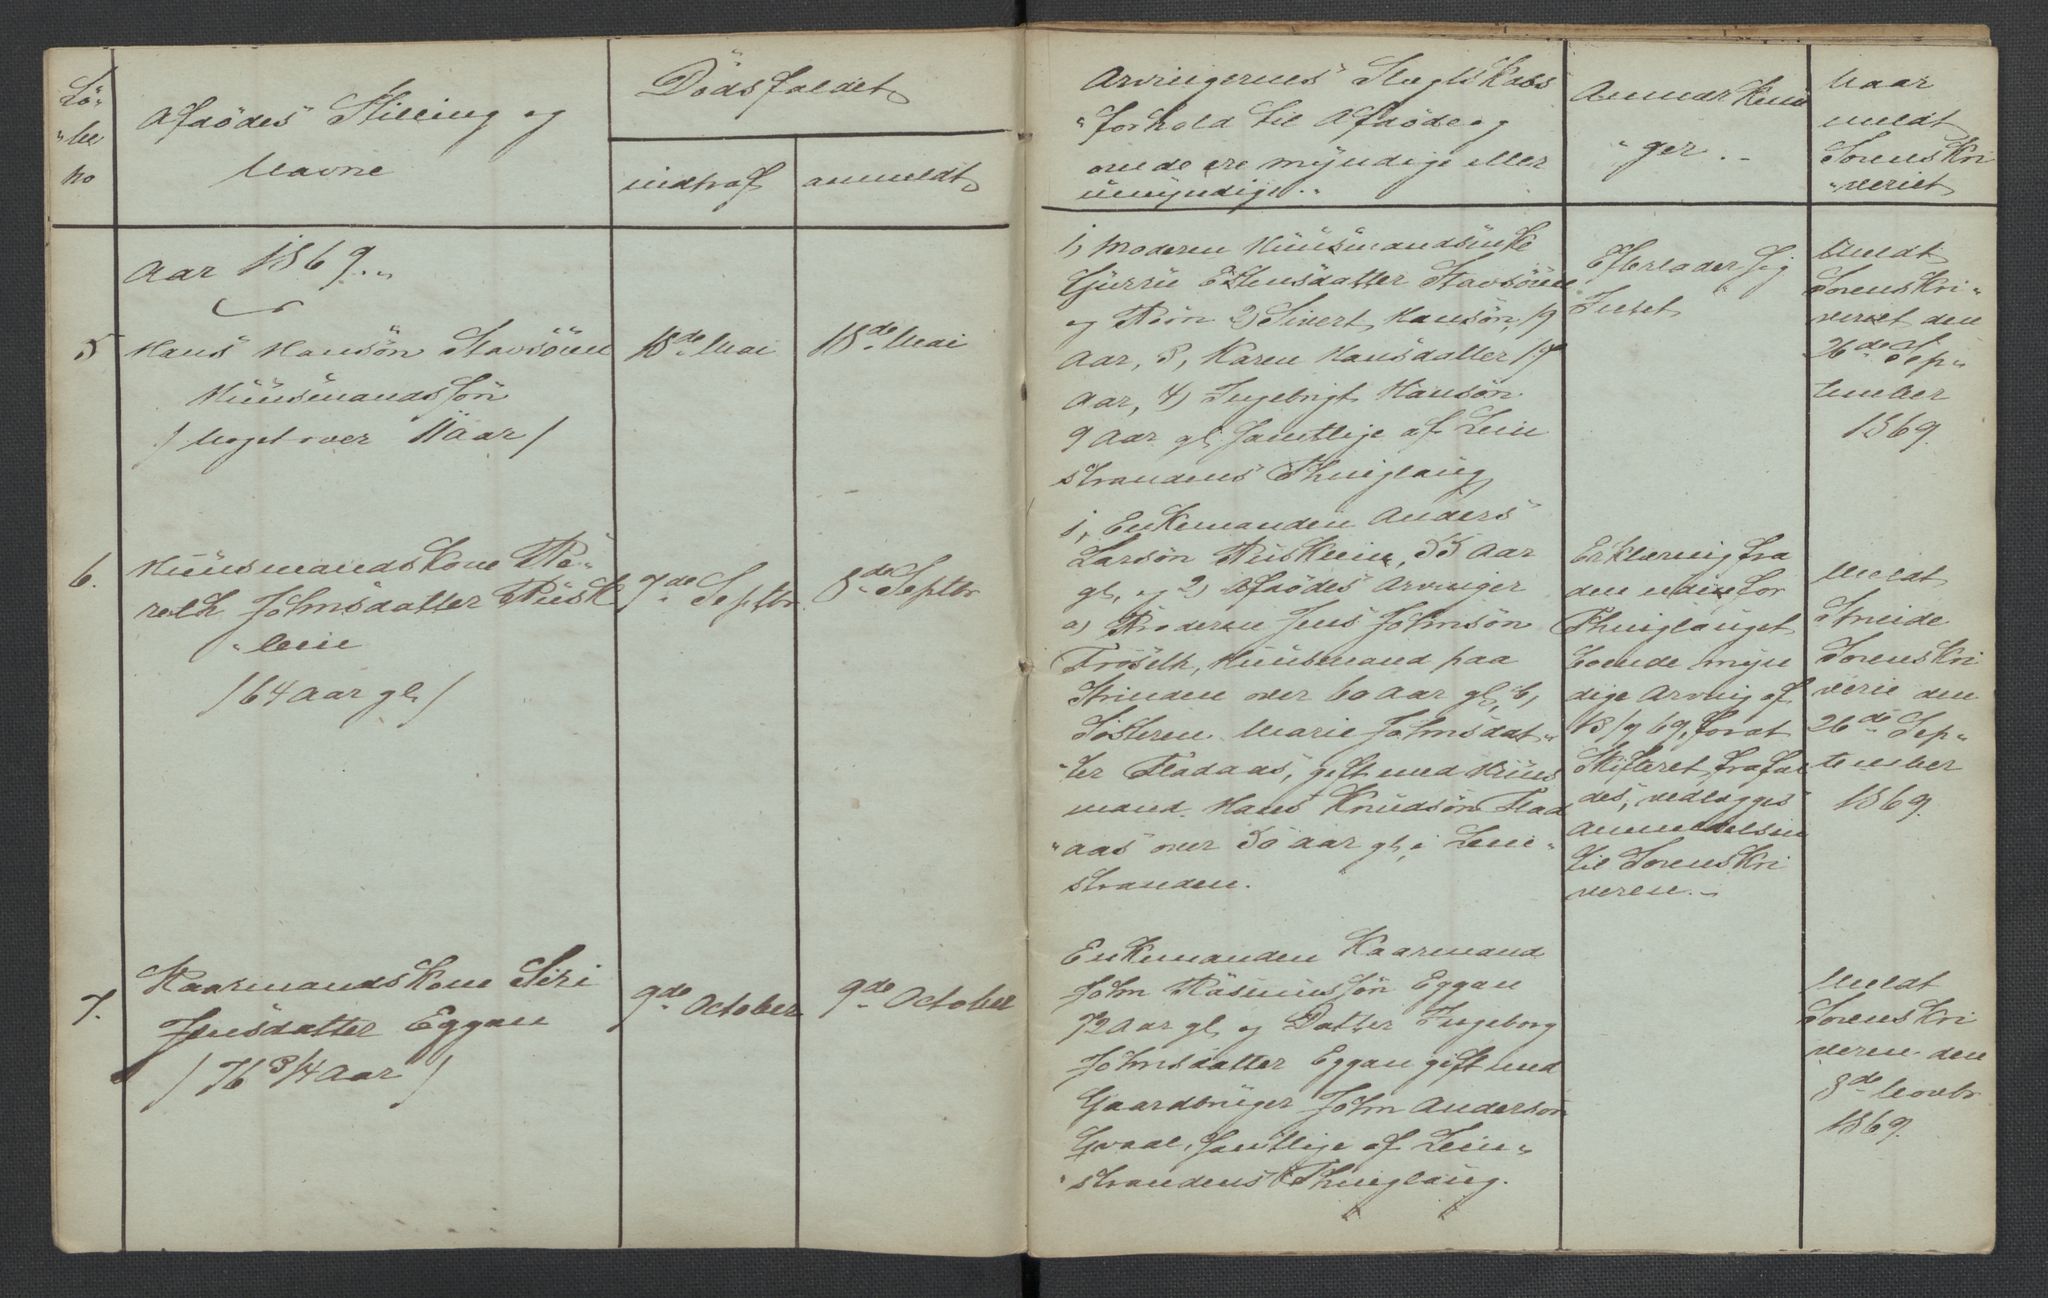 Lö-
"be
no
Afdödes Stilling og
Navne
Dödsfaldet
indtraf
anmeldt
Arvingernes Slægtskabs
"forhold til Afdöde og
om de ere myndige eller
umyndige..
Anmærknin
"ger..
Naar
meldt
Sorenskri
"veriet
Aar 1869..
5
Hans Hansön Stavsöien
Huusmandssön
/ Noget over 11 Aar /
18de Mai
18de Mai
1, Moderen Huusmandsenke
Gurru Estensdatter Stavsöien
og Börn 2) Sivert Hansön, 19
Aar, 3, Karen Hansdatter 17
Aar, 4) Ingebrigt Hansön
9 Aar gl. samtlige af Lein
strandens Thinglaug
Efterlader sig
Intet
Meldt
Sorenskri-
veriet den
26de Sep-
tember
1869.
6.
Huusmandskone Be-
reth Johnsdatter Rusk
"lein
/ 64 Aar gl. /
7de Septbr.
8de Septbr
1, Enkemanden Anders
Larsön Rusklein, 55 Aar
gl, og 2) Afdödes Arvinger
a) Broderen Jens Johnsön
Fröseth, Huusmand paa
Strinden over 60 Aar gl, b,
Sösteren Marie Johnsdat-
"ter Fladaas, gift med Huus
mand Hans Knudsön Flad
"aas over 50 Aar gl, i Lein-
stranden.
Erklæring fra
den udenfor
Thinglauget
boende myn
dige Arving af
13/9 69, for at
Skifteret frafal
des, vedlagges
Anmeldelsen
til Sorenskri
veren.-
Meldt
Strinde
Sorenskri
verie den
26de Sep-
tember
1869.
7.
Kaarmandskone Siri
Jensdatter Eggan
/ 76 3/4 Aar /
9de October
9de October
Enkemanden Kaarmand
John Rasmussön Eggan
72 Aar gl, og Datter Ingeborg
Johnsdatter Eggan gift med
Gaardbruger John Anderson
Kvaal, samtlige af Lein-
"strandens Thinglaug.
Meldt
Sorenskri
veren den
8de Novbr
1869.